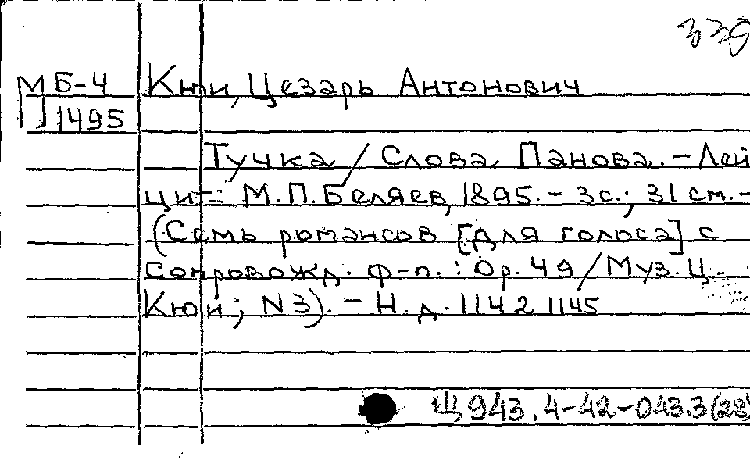 339
МБ-4 Кюи, Цезарь Антонович
П 1495
Тучка / Слова Панова. - Лей
циг: М.П.Беляев, 1895. - 3с.; 31 см. -
(Семь романсов [для голоса] с
сопровожд. ф-п. : Op. 49 / Муз. Ц.
Кюи; N3). - Н.д. 1142 1145
Щ943.4-42-043.3(28)